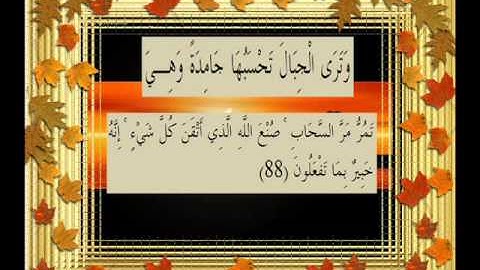 وَتَرَى الْجِبَالَ تَحْسَبُهَا جَامِدَةً وَهِـــيَ
تَمُرُّ مَرَّ السَّحَابِ ۚ صُنْعَ اللَّهِ الَّذِي أَتْقَنَ كُلَّ شَيْءٍ ۚ إِنَّهُ
خَبِيرٌ بِمَا تَفْعَلُونَ (88)